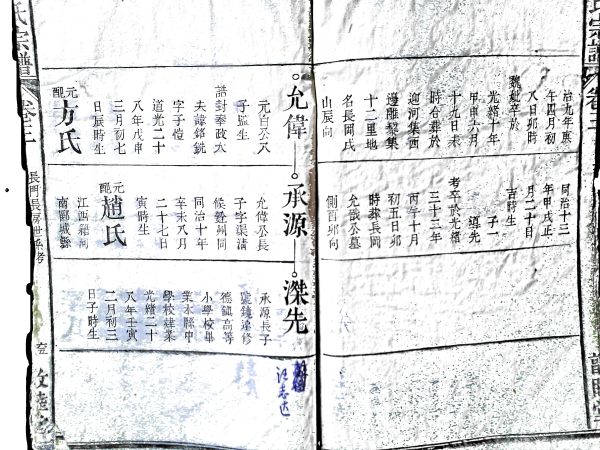 治九年庚
午四月初
八日卯時
卒於
光緒十年
甲申六月
十九日未
時合葬於
迎河集西
邊集
十二里地
名長岡戌
山辰向
同治十三
年甲戌正
月二十日
吉時生
子一
導先
考卒於光緒
三十三年
丙午十月
初五日卯
時葬長岡
允公墓
側酉卯向
允偉
元泊公次
子監生
誥封奉政大
夫諱銘銑
字子愷
道光二十
八年戊申
三月初七
日辰時生
元配
方氏
承源
允偉公長
子字渠清
候銓州同
同治十年
辛未八月
二十七日
寅時生
元配
趙氏
江西籍河
南郾城縣
傑先
承源長子
號鏡遠修
德鎮高等
小學校畢
業本縣中
學校肄業
光緒二十
八年壬寅
二月初三
日子時生
汪志达
氏宗譜
卷三
長門長房世系考